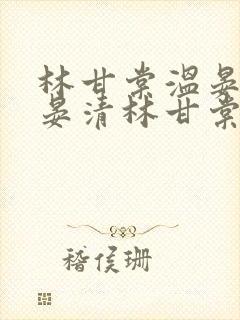 林甘棠温晏
晏清林甘棠
稽侯珊